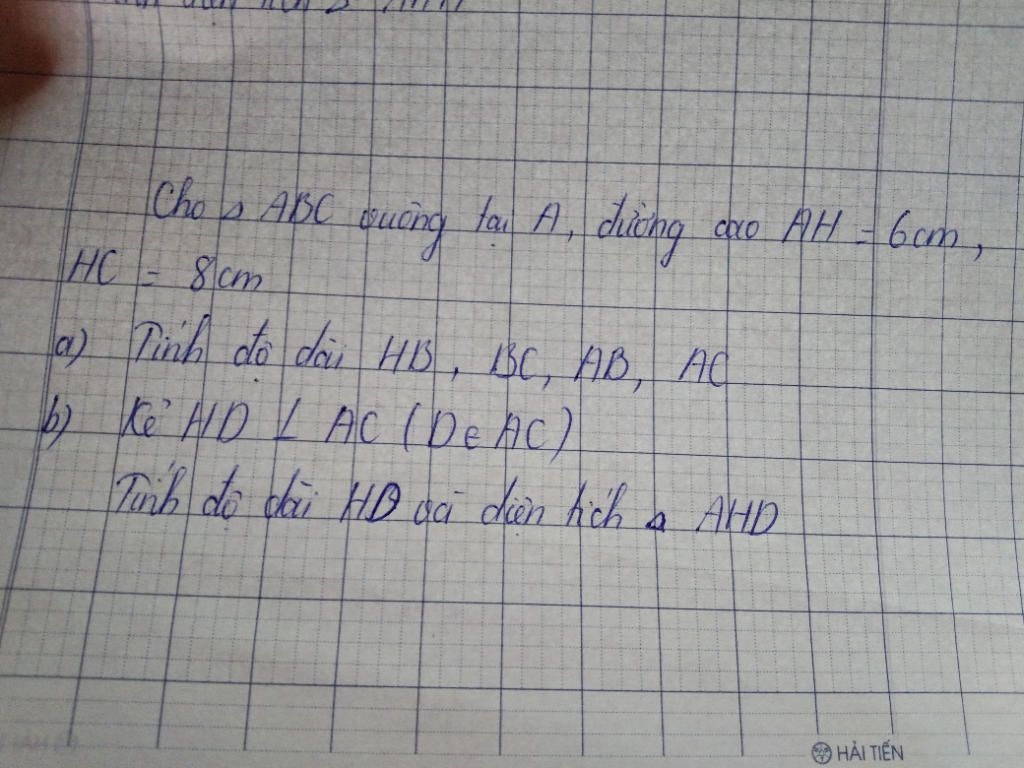 Cho △ ABC vuông tại A, đường cao AH = 6cm,
HC = 8cm
a) Tính độ dài HB, BC, AB, AC
b) Kẻ HD ⊥ AC (D ∈ AC)
Tính độ dài HD và diện tích △ AHD
HẢI TIẾN